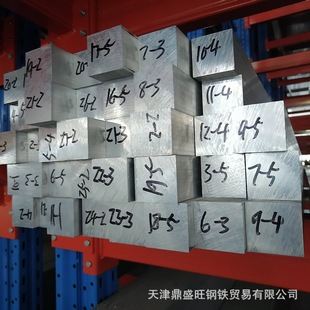 17-5
7-3
10-4
19-2
21-2
26-2
16-5
8-3
11-4
21-3
2-2
12-4
9-5
3-3
6-5
22-3
19-5
3-5
7-5
24-2
23-3
18-5
6-3
9-4
天津鼎盛旺钢铁贸易有限公司